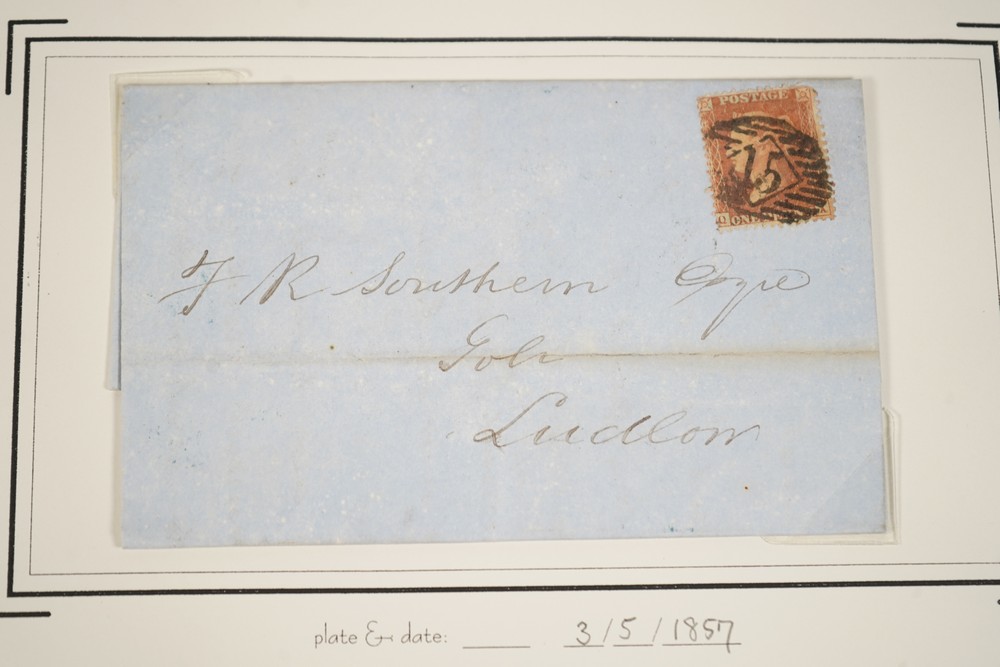 POSTAGE
15
F R Southern Esqre
Solr
Ludlow
plate & date: 3/5/1857